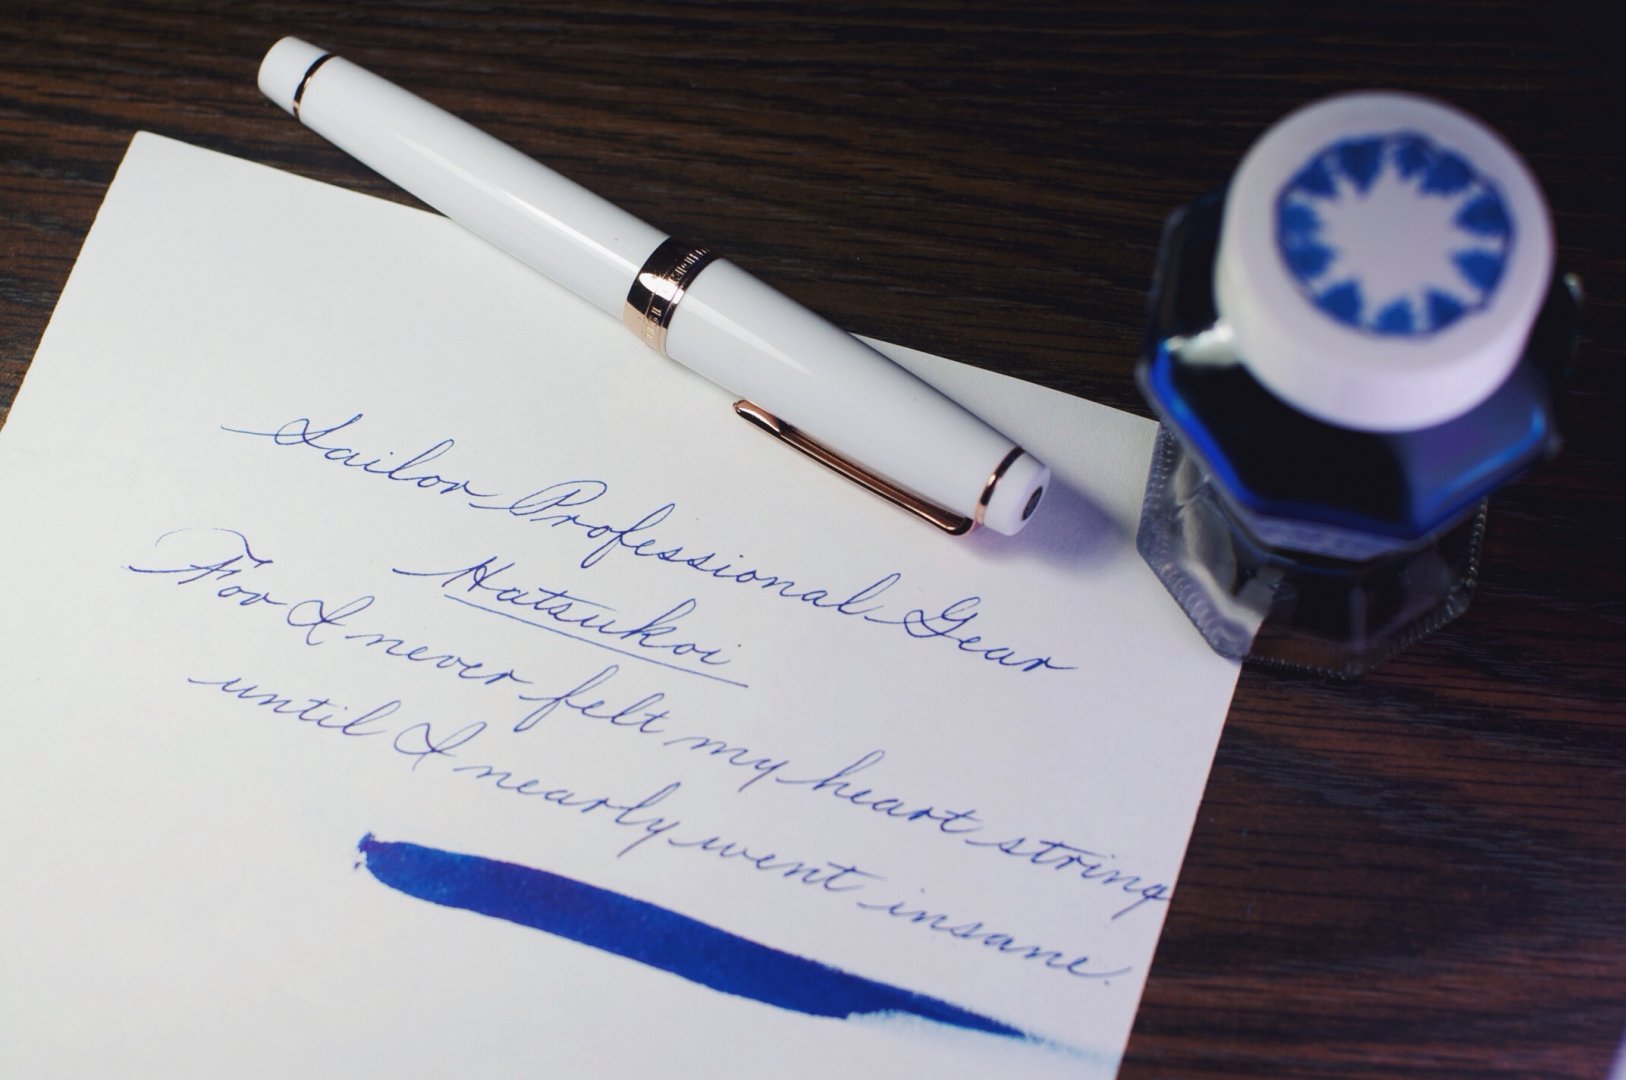 Sailor Professional Gear
Hatsukoi
For I never felt my heart string
until I nearly went insane.